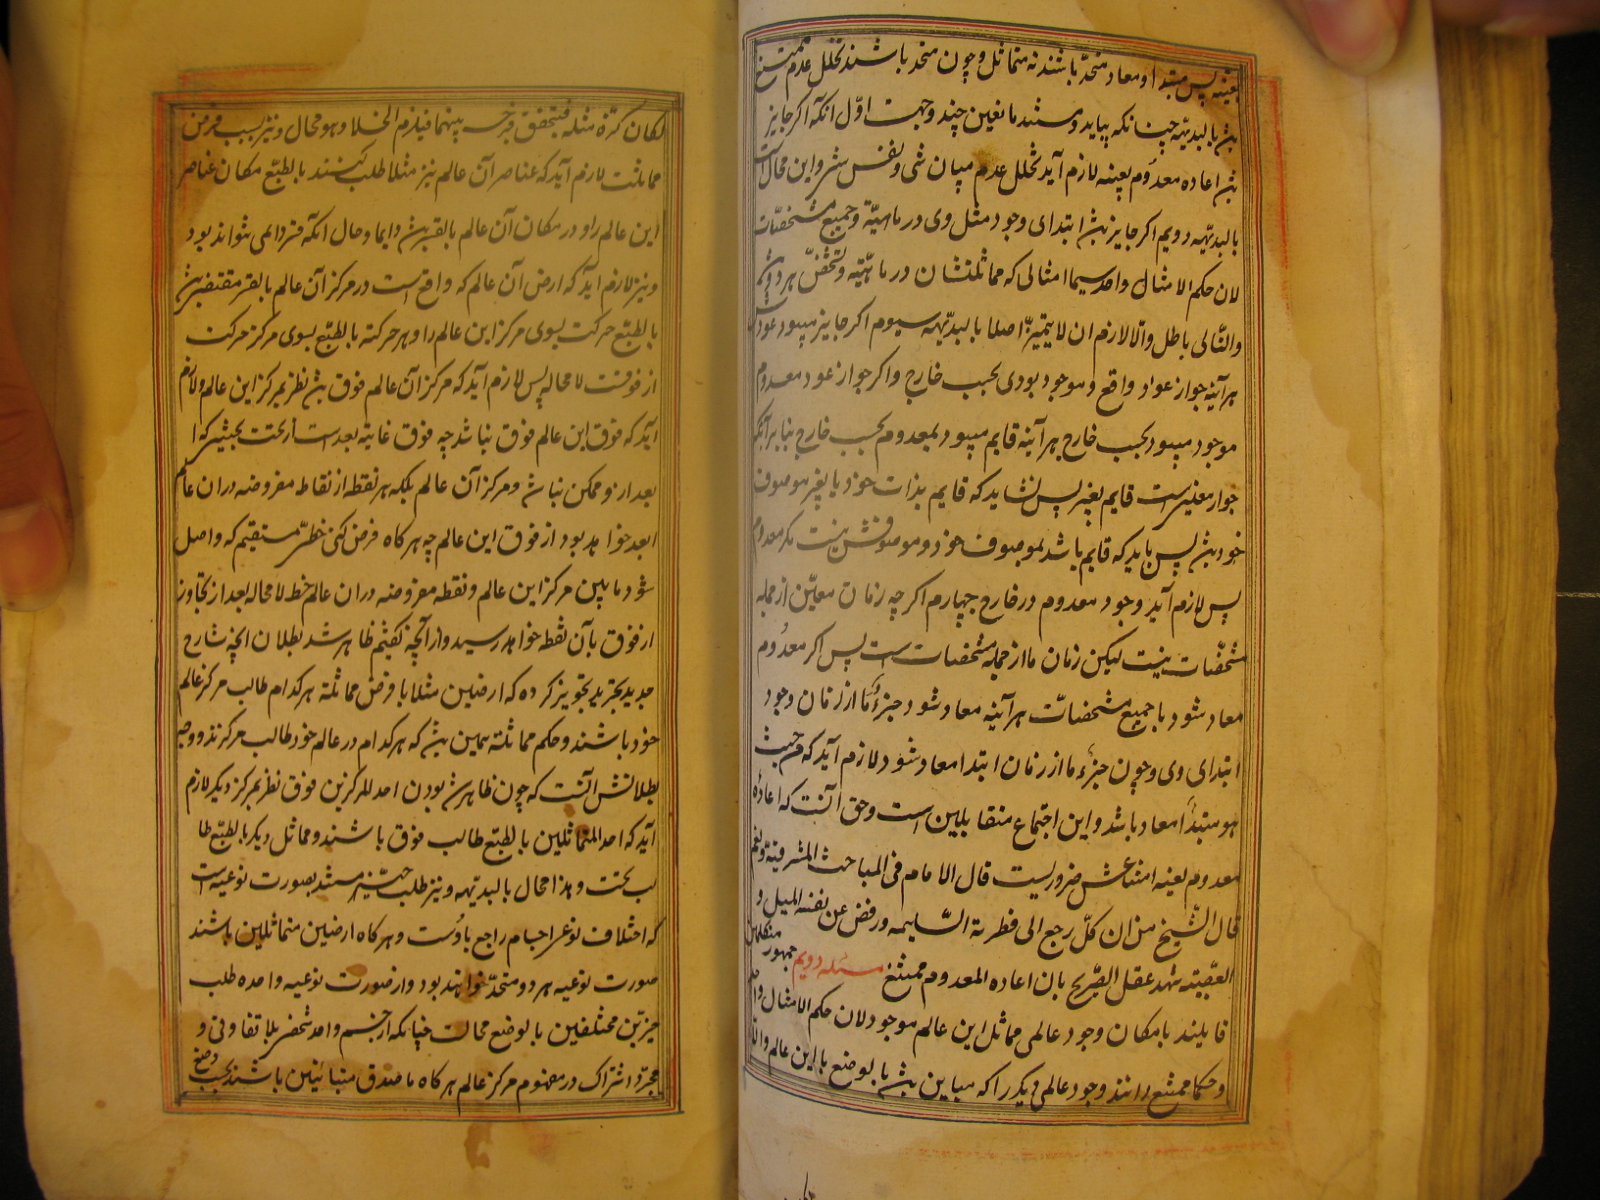 بعینه پس مبتدا و معاد متحد باشند نه متماثل و چون متحد باشند تخلل عدم ممتنع
بالبدیهه چنانکه بیاید و مستند مانعین چند وجهت اول آنکه اگر جایز
اعاده معدوم بعینه لازم آید تخلل عدم میان شی و نفس شی و این محال است
بالبدیهه دویم اگر جایز ابتدای وجود مثل وی در ماهیة و جمیع مشخصات
لان حکم الامثال واحد سیما امثالی که مماثلتشان در ماهیته و تشخص هر دو
والتالی باطل والا لازم ان لا یتمیز اصلا بالبدیهه سیوم اگر جایز میبود عود
هر آینه جواز عود واقع و موجود بودی بحسب خارج و اگر جواز عود معدوم
موجود میبود بحسب خارج هر آینه قایم میبود بمعدوم بحسب خارج بنابر آنکه
جواز معنیست قایم بغیر پس نشاید که قایم بذات خود یا بغیر موصوف
خود پس باید که قایم باشد بموصوف خود و موصوفش نیست مگر معدوم
پس لازم آید وجود معدوم در خارج چهارم اگر چه زمان معین از جمله
مشخصات نیست لیکن زمان ما از جمله مشخصات است پس اگر معدوم
معاد شود با جمیع مشخصات هر آینه معاد شود جزء ما از زمان وجود
ابتدای وی و چون جزء ما از زمان ابتدا معاد شود لازم آید که من حیث
هو مبتدأ معاد باشد و این اجتماع متقابلین است و حق آنست که اعاده
معدوم بعینه امتناعش ضروریست قال الامام فی المباحث المشرقیة ونعم
قال الشیخ من ان کل رجع الی فطرته السلیمه ورفض عن نفسه المیل و
العصبیة شهد عقل الصریح بان اعاده المعدوم ممتنع مسئله دویم جمهور متکلمین
قایلند بامکان وجود عالمی مماثل این عالم موجود لان حکم الامثال واحد
و حکما ممتنع دانند وجود عالمی دیگر را که مباین بالوضع با این عالم والا
لکان کرة مثله فیتحقق فرجة بینهما فیلزم الخلاء وهو محال و نیز بسبب فرض
مماثلت لازم آید که عناصر آن عالم نیز مثلا طلب کنند بالطبع مکان عناصر
این عالم را و در مکان آن عالم بالقسر دایما و حال آنکه قسر دائمی نتواند بود
و نیز لازم آید که ارض آن عالم که واقع است در مرکز آن عالم بالقسر مقتضی
بالطبع حرکت بسوی مرکز این عالم را و هر حرکته بالطبع بسوی مرکز حرکت
از فوقست لا محاله پس لازم آید که مرکز آن عالم فوق نظر بمرکز این عالم و لازم
آید که فوق این عالم فوق نباشد چه فوق غایة بعد است از تحت بحیثیتی که ا
بعد از و ممکن نباشد و مرکز آن عالم بلکه هر نقطه از نقاط مفروضه در ان عالم
ابعد خواهد بود از فوق این عالم چه هر کاه فرض کنی خطی مستقیم که واصل
شود ما بین مرکز این عالم و نقطه مفروضه در ان عالم خط لا محاله بعد از تجاوز
از فوق بآن نقطه خواهد رسید و از آنچه گفتیم ظاهر شد بطلان آنچه شارح
جدید تجرید تجویز کرده که ارضین مثلا با فرض مماثلة هر کدام طالب مرکز عالم
خود باشند و حکم مماثلة همین که هر کدام در عالم خود طالب مرکزند و وجه
بطلانش آنست که چون ظاهر بودن احد المرکزین فوق نظر بمرکز دیگر لازم
آید که احد المتماثلین بالطبع طالب فوق باشند و مماثل دیگر بالطبع طا
لب تحت و هذا محال بالبدیهه و نیز طلب حیز مستند بصورت نوعیه است
که اختلاف نوعی اجسام راجع باوست و هر کاه ارضین متماثلین باشند
صورت نوعیه هر دو متحد خواهند بود و از صورت نوعیه واحده طلب
حیزین مختلفین بالوضع محالست چنانکه از جسم واحد شخصی بلا تفاوتی و
مجرد اشتراک در مفهوم مرکز عالم هر کاه ما صدق متباینین باشند بحسب وضع